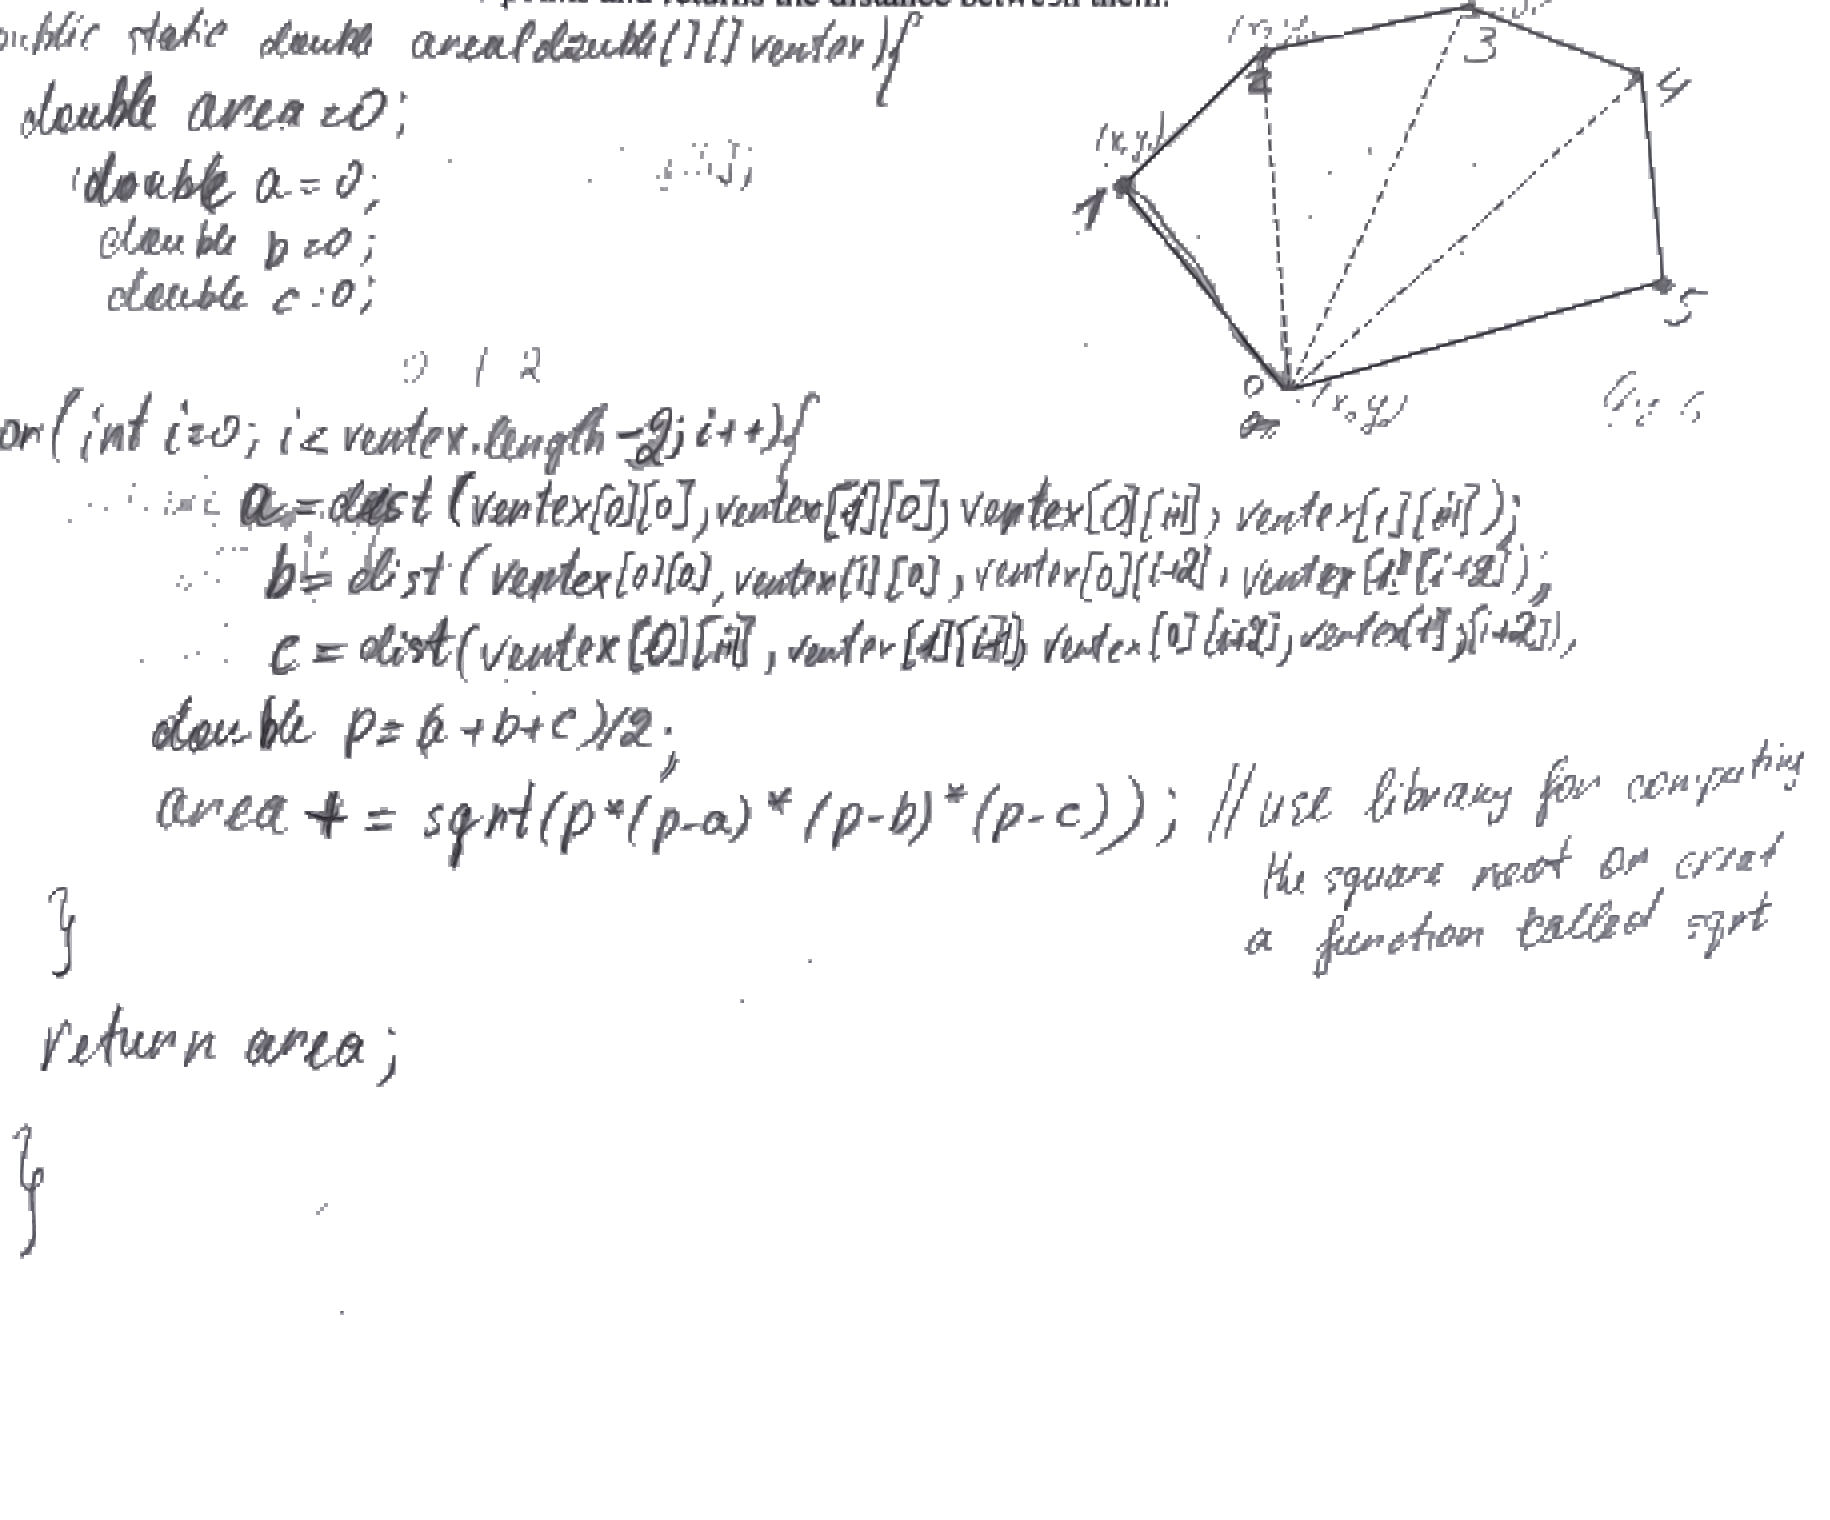 points and returns the distance between them.
public static double area(double[][] vertex){
double area=0;
double a=0;
double b=0;
double c=0;
0 1 2
or(int i=0; i<vertex.length-2; i++){
a=dist(vertex[0][0],vertex[1][0],vertex[0][i+1],vertex[1][i+1]);
b=dist(vertex[0][0],vertex[1][0],vertex[0][i+2],vertex[1][i+2]);
c=dist(vertex[0][i+1],vertex[1][i+1],vertex[0][i+2],vertex[1][i+2]);
double p=(a+b+c)/2;
area += sqrt(p*(p-a)*(p-b)*(p-c)); //use library for computing
the square root or creat
a function called sqrt
}
return area;
}
3
2
4
(x,y)
1
5
0
(x,y)